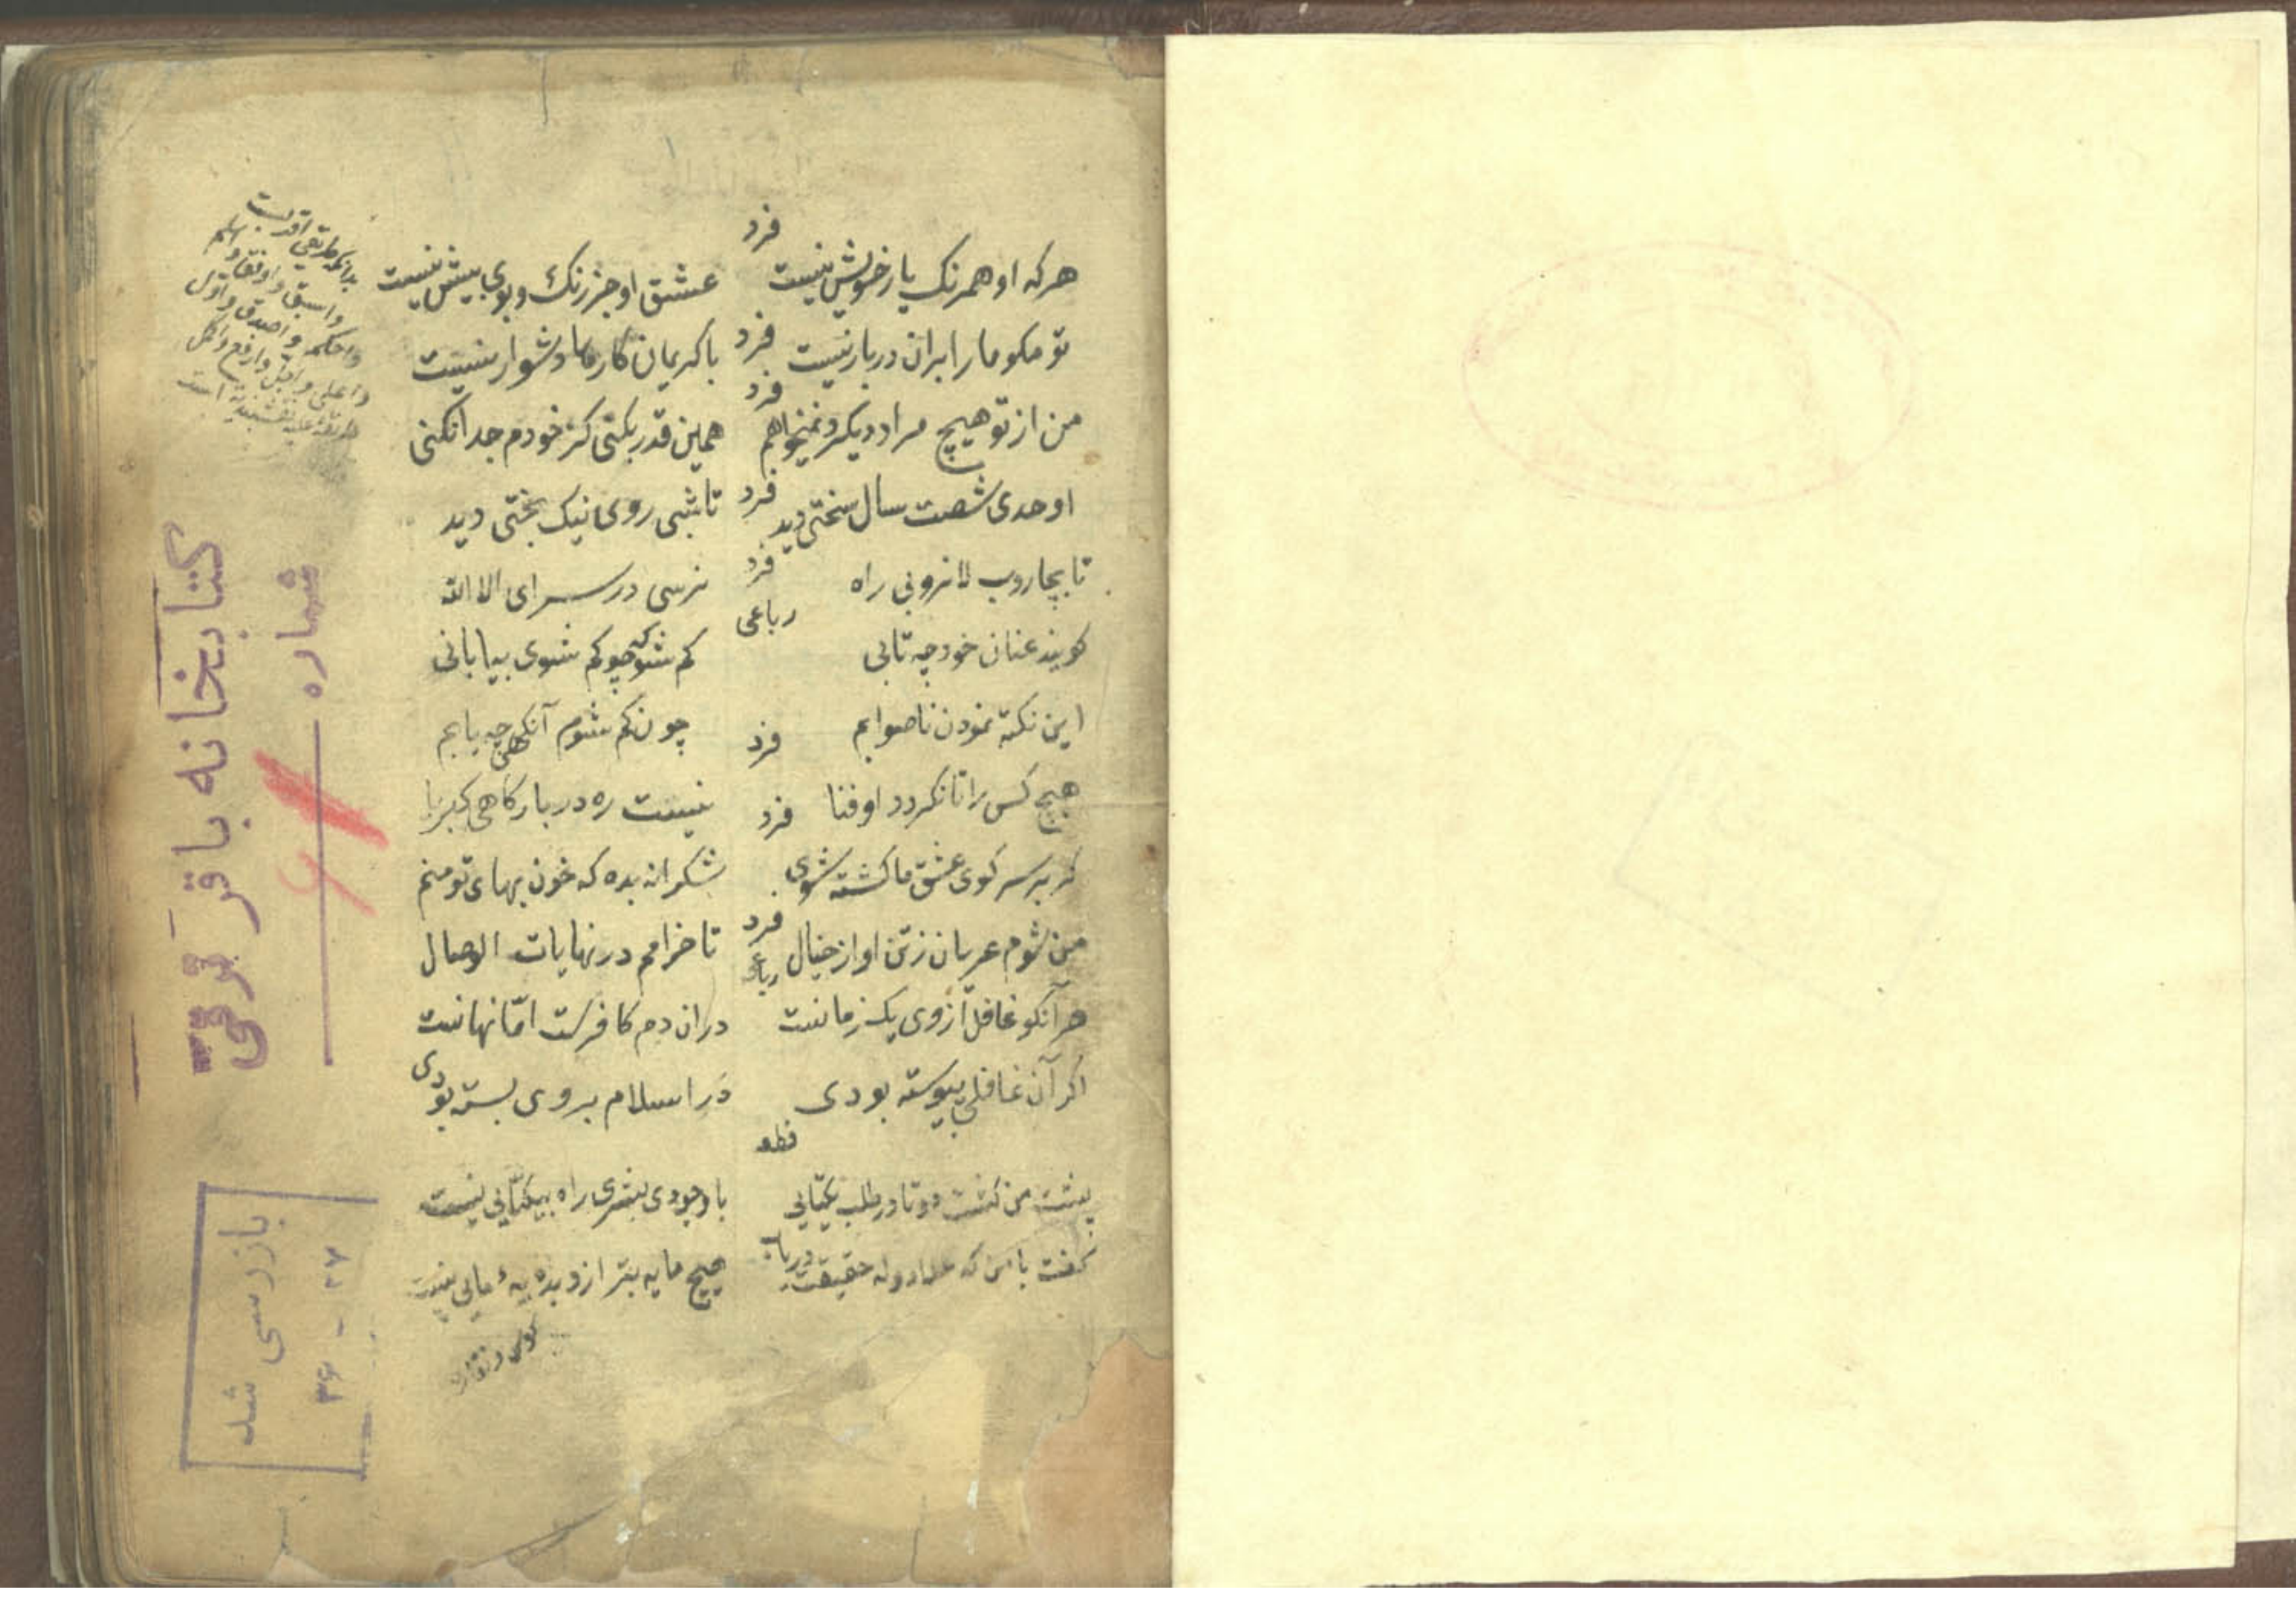 فرد
هرکه او همرنک یار خویش نیست عشق او جز رنک و بوی بیش نیست
فرد
تو مکو ما را بران دربار نیست با کریمان کارها دشوار نیست
فرد
من از تو هیچ مراد دیکر نمیخواهم همین قدر بکنی کز خودم جدا نکنی
فرد
اوحدی شصت سال سختی دید تا شبی روی نیک بختی دید
فرد
تا بجاروب لا نروبی راه نرسی در سرای الا الله
رباعی
کویند عنان خود چه تابی کم شو که چو کم شوی بیابانی
این نکته نمودن ناصوابم چون کم شوم آنکهی چه یابم
فرد
هیچ کس را تا نکردد او فنا نیست ره در بارکاهی کبریا
فرد
کر بر سر کوی عشق ما کشته شوی شکرانه بده که خون بهای تو منم
فرد
من شوم عریان ز تن او از خیال تا خرامم در نهایات الوصال
رباعی
هر آنکو غافل از وی یک زمانست در ان دم کافرست امّا نهانست
اکر آن غافلی پیوسته بودی در اسلام بروی بسته بودی
قطعه
پشت من کشت دوتا در طلب یکتایی با وجودی بشری راه بیکتایی نیست
کفت با من که حقیقت دریاب هیچ مایه بتر از و نیست
بدانکه طریقی اقرب
واسبق و اوفق و اسلم
واحکم و اصدق و اول
واعلی و اجل و ارفع و اکمل
طریقه علیه نقشبندیه است
کتابخانه باقر ترقی
شماره
بازرسی شد
۳۶ - ۳۷